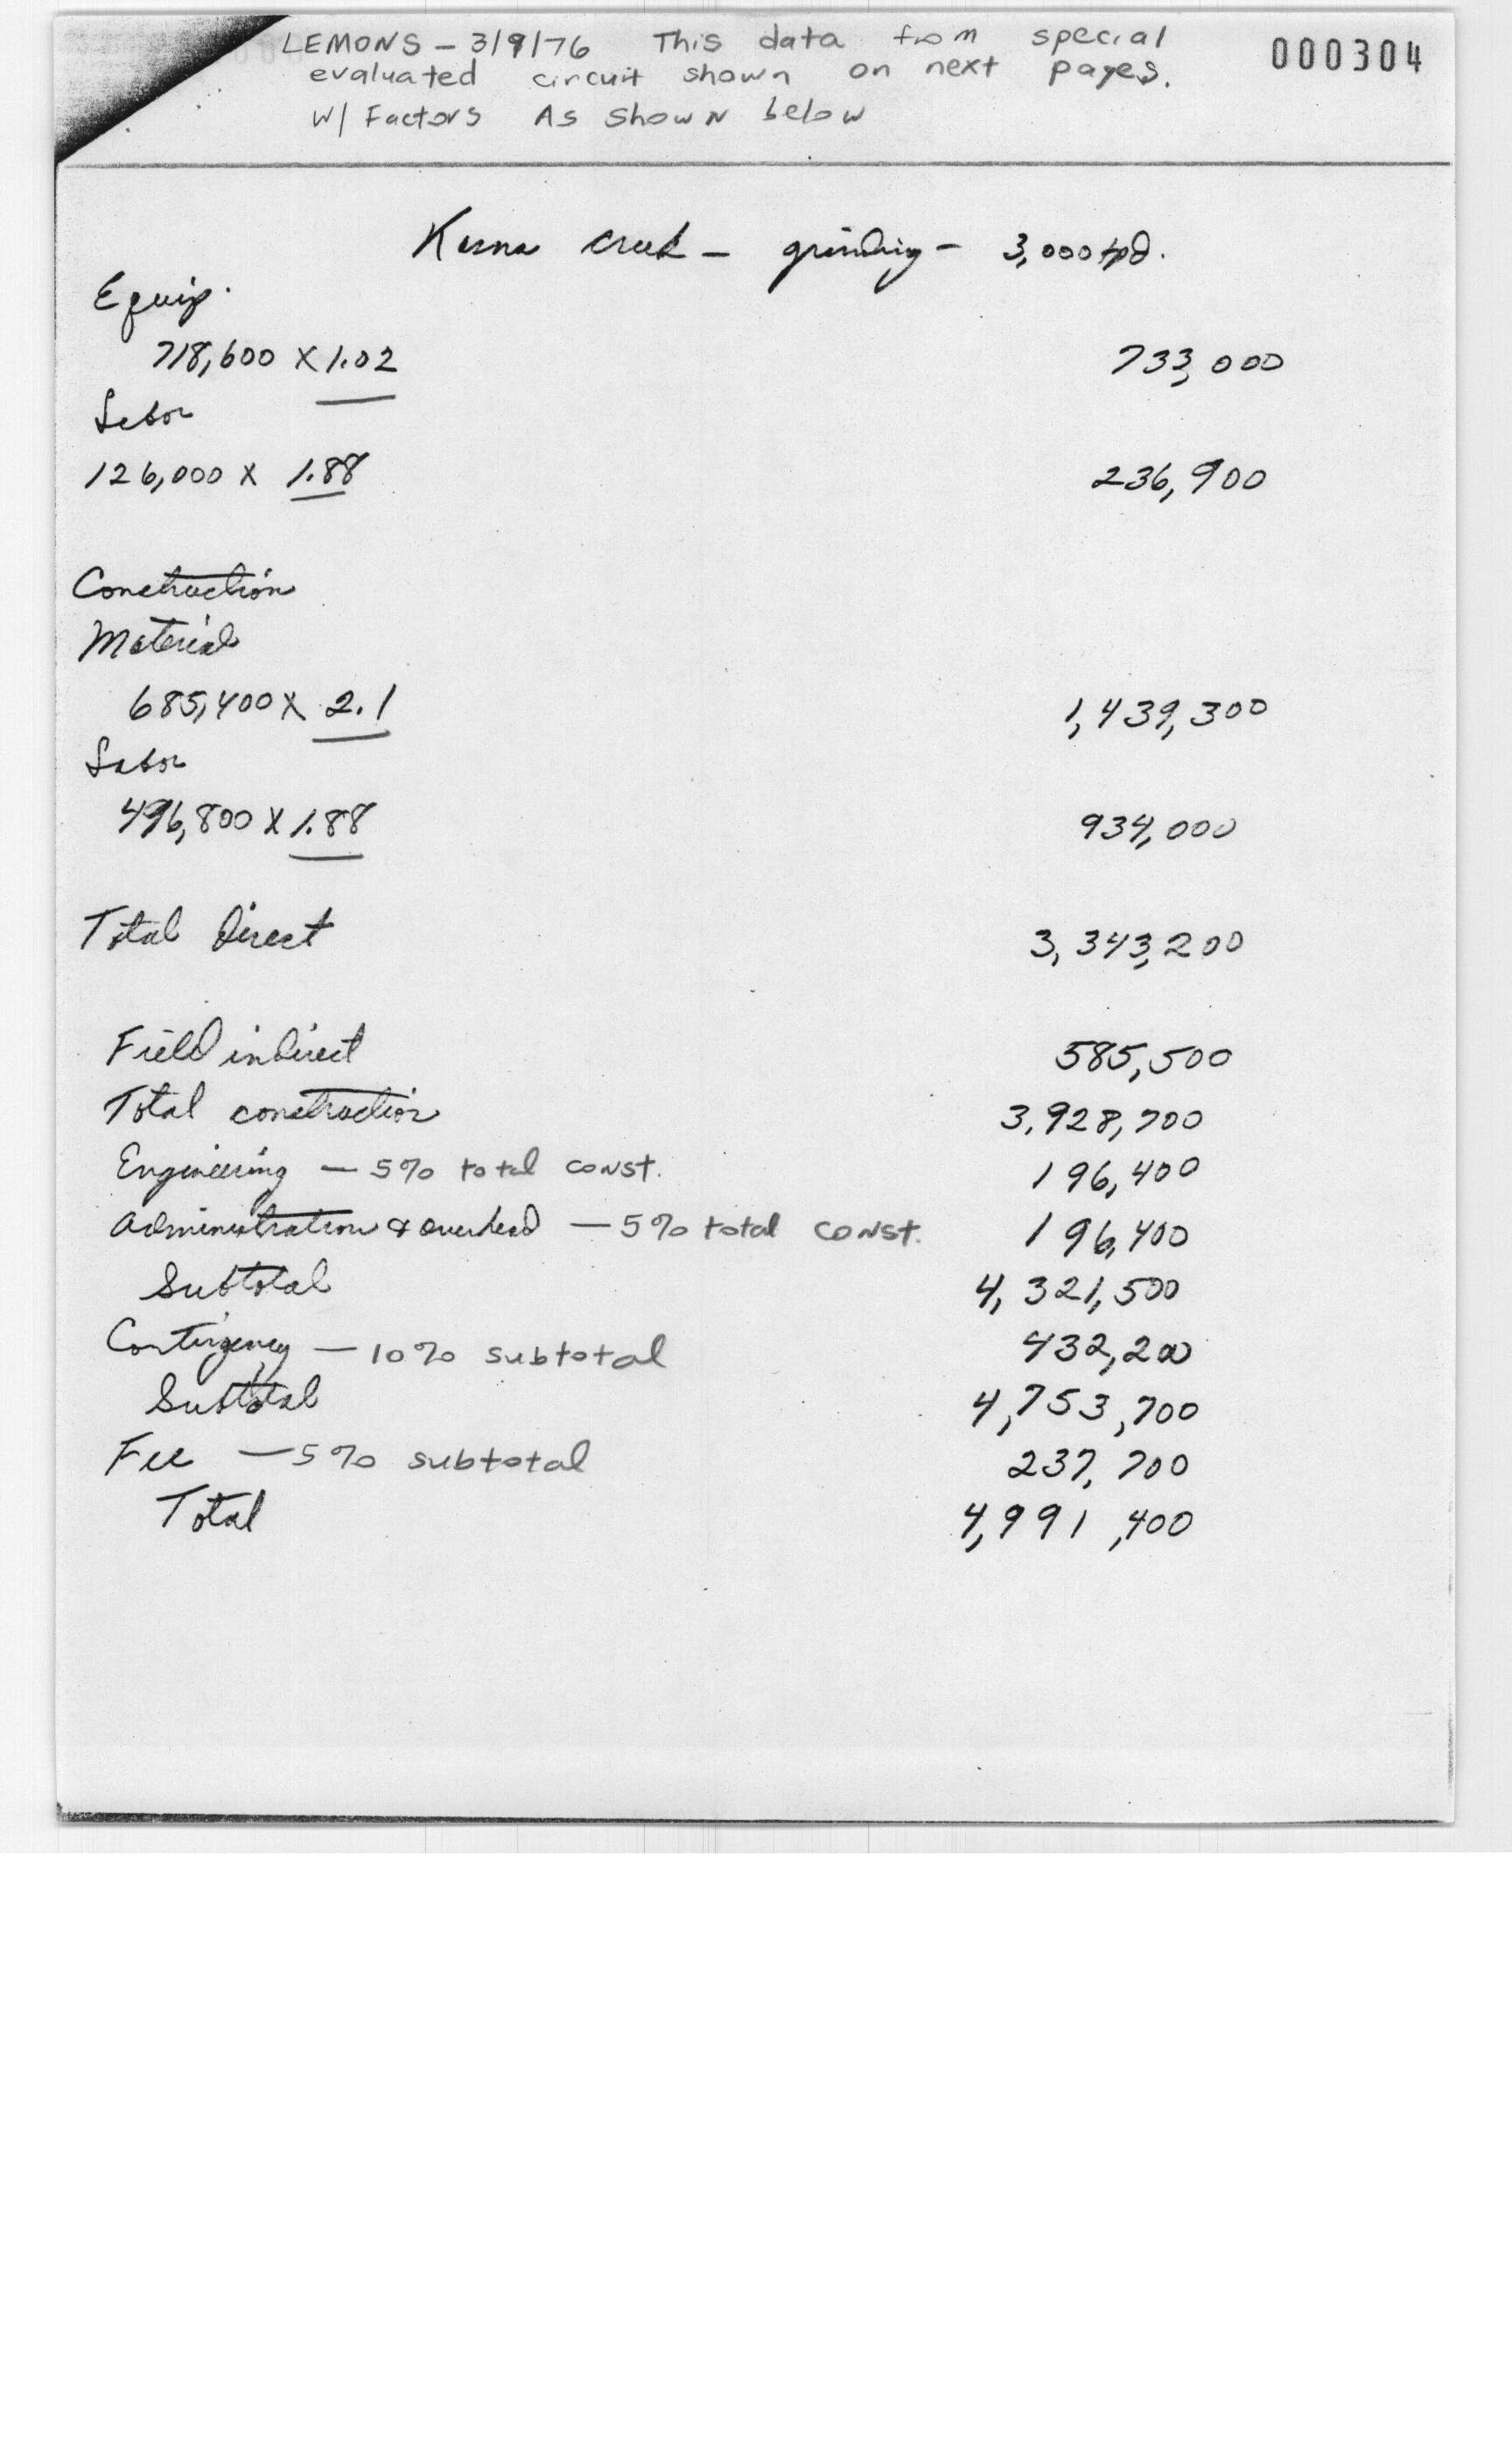 LEMONS - 3/9/76 This data from special
000304
evaluated circuit shown on next pages.
W/ Factors As Shown below
Creek - grinding - 3,000 tpd.
Equip.
718,600 X 1.02 733,000
Labor
126,000 X 1.88 236,900
Construction
Material
685,400 X 2.1 1,439,300
Labor
496,800 X 1.88 934,000
Total direct 3,343,200
Field indirect 585,500
Total construction 3,928,700
Engineering - 5% total const. 196,400
Administration & overhead - 5% total const. 196,400
Subtotal 4,321,500
Contingency - 10% subtotal 432,200
Subtotal 4,753,700
Fee - 5% subtotal 237,700
Total 4,991,400